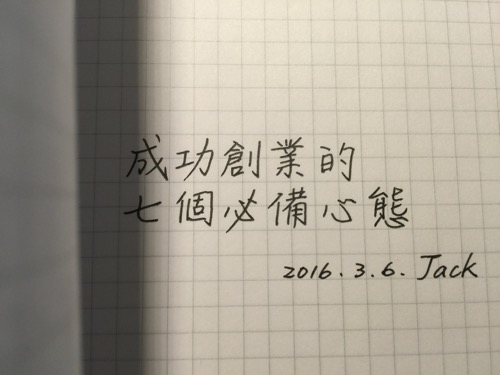 成功創業的
七個必備心態
2016.3.6. Jack